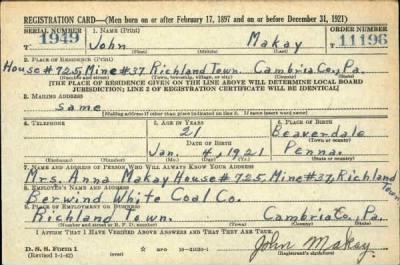 REGISTRATION CARD—(Men born on or after February 17, 1897 and on or before December 31, 1921)
SERIAL NUMBER 1. NAME (Print) ORDER NUMBER
T 1949 John Makay T 11196
(First) (Middle) (Last)
2. PLACE OF RESIDENCE (Print)
House#725, Mine#37 Richland Town. Cambria Co., Pa.
(Number and street) (Town, township, village, or city) (County) (State)
[THE PLACE OF RESIDENCE GIVEN ON THE LINE ABOVE WILL DETERMINE LOCAL BOARD
JURISDICTION; LINE 2 OF REGISTRATION CERTIFICATE WILL BE IDENTICAL]
3. MAILING ADDRESS
same
[Mailing address if other than place indicated on line 2. If same insert word same]
4. TELEPHONE 5. AGE IN YEARS 6. PLACE OF BIRTH
21 Beaverdale
DATE OF BIRTH (Town or county)
Jan. 4, 1921 Penna.
(Exchange) (Number) (Mo.) (Day) (Yr.) (State or country)
7. NAME AND ADDRESS OF PERSON WHO WILL ALWAYS KNOW YOUR ADDRESS
Mrs. Anna Makay House#725, Mine#37, Richland Town
8. EMPLOYER'S NAME AND ADDRESS
Berwind White Coal Co.
9. PLACE OF EMPLOYMENT OR BUSINESS
Richland Town. Cambria Co., Pa.
(Number and street or R. F. D. number) (Town) (County) (State)
I AFFIRM THAT I HAVE VERIFIED ABOVE ANSWERS AND THAT THEY ARE TRUE.
D. S. S. Form 1 GPO John Makay
(Revised 1-1-42) (Registrant's signature)